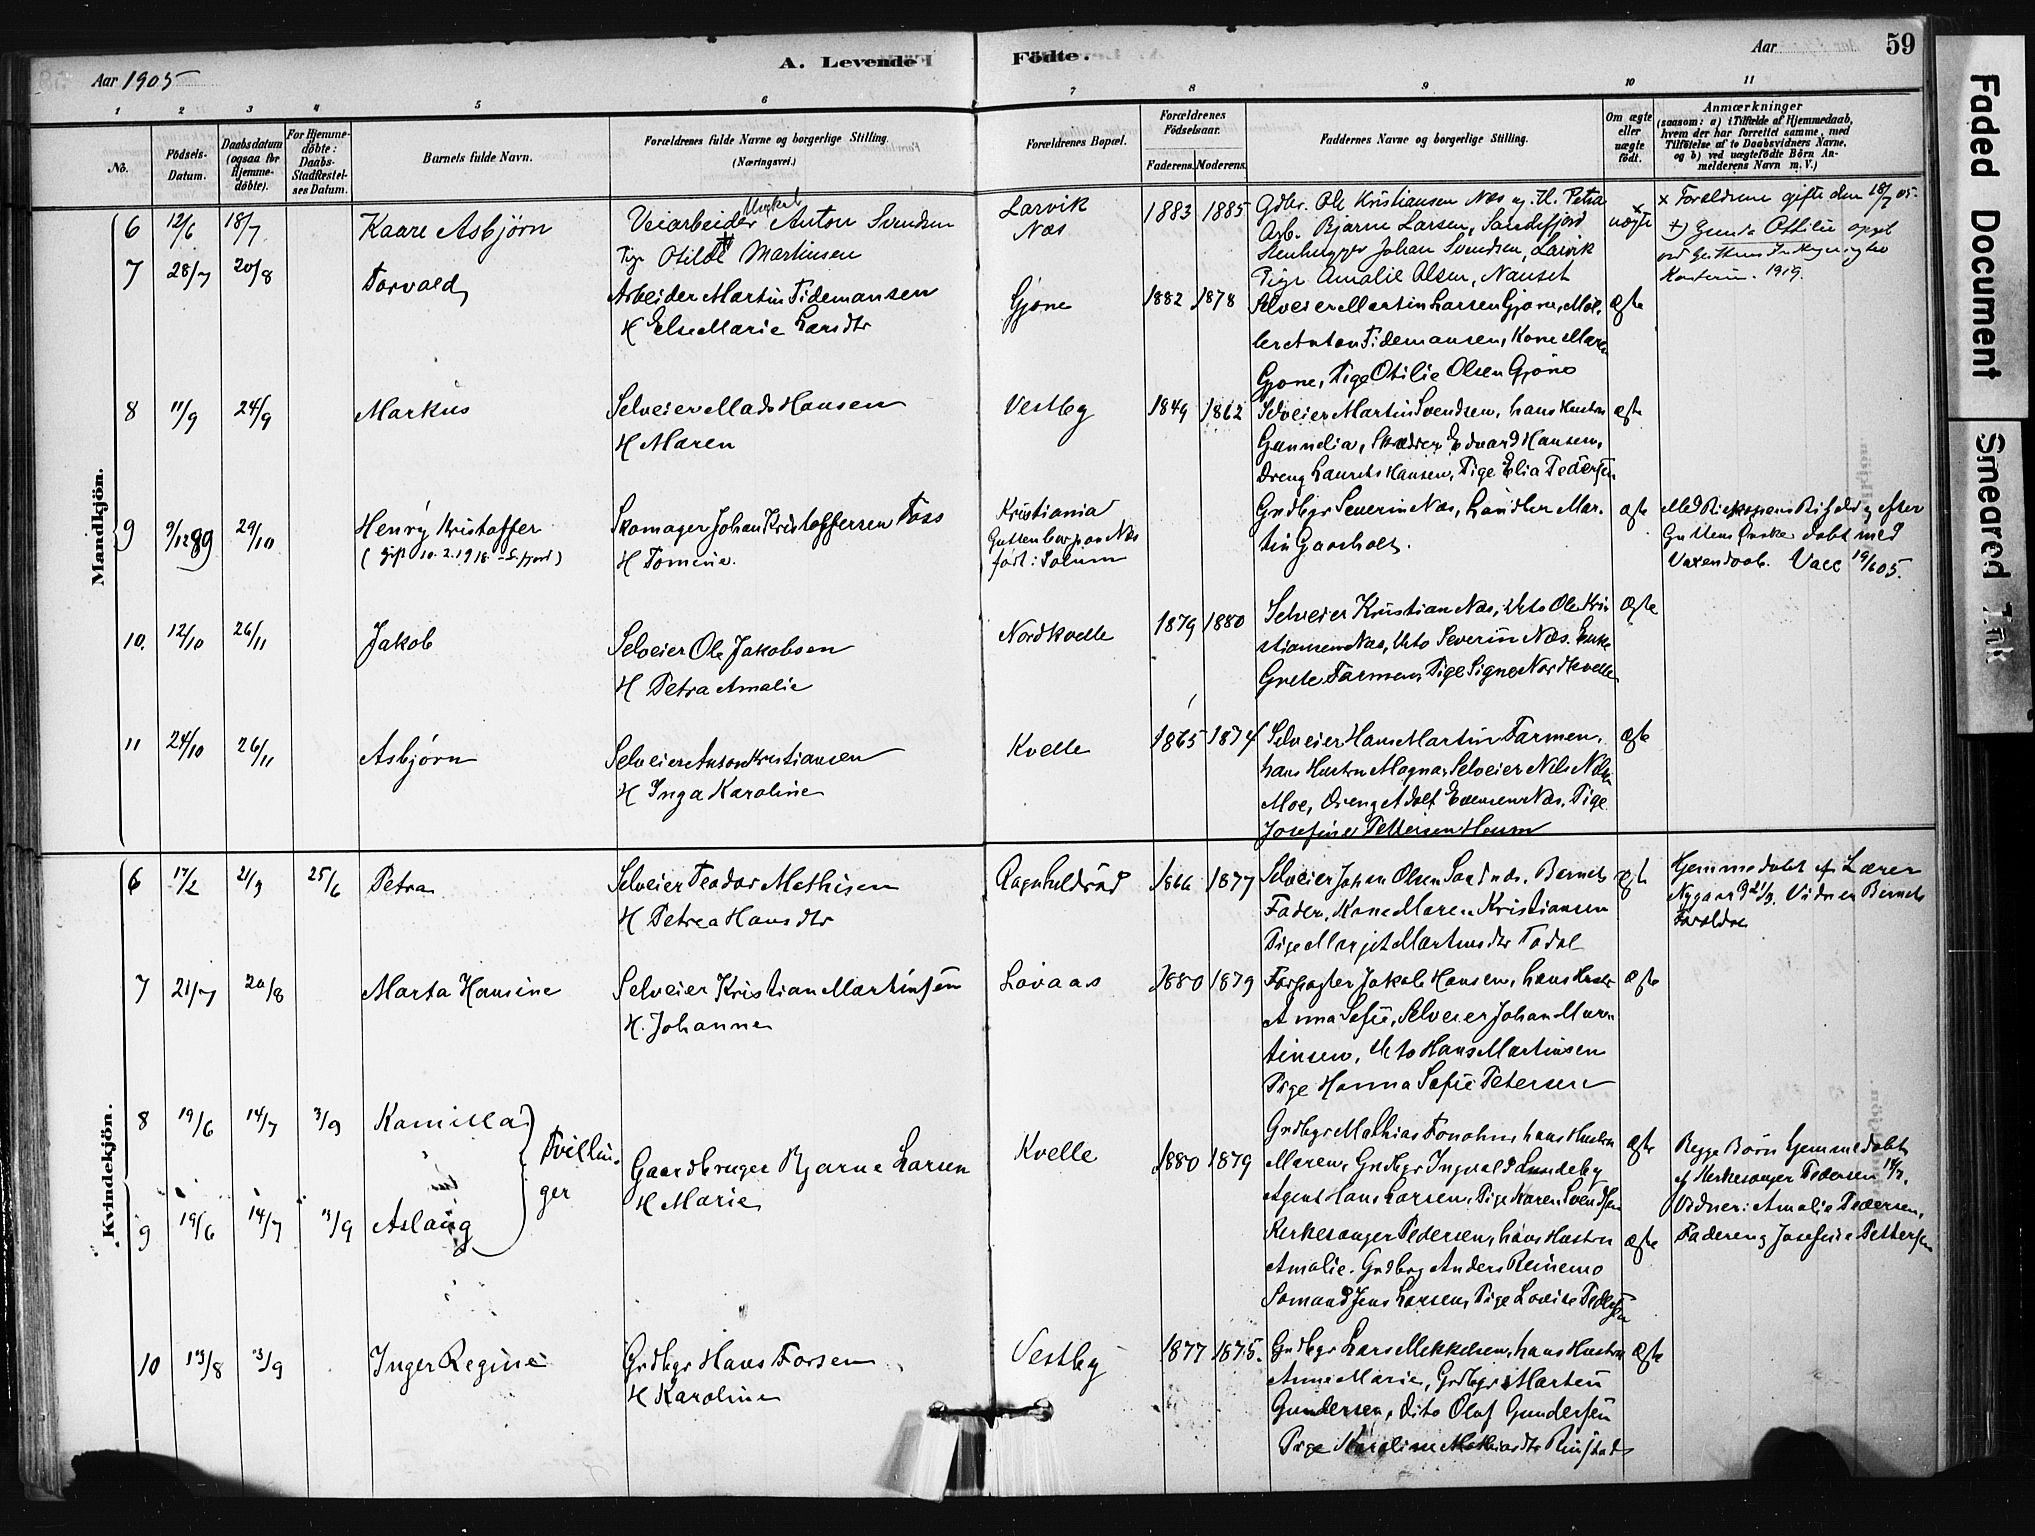 Aar 1905
A. Levende
Födte.
Aar
59
1 2 3 4 5 6 7 8 9 10 11
No.
Födsels-Datum.
Daabsdatum (ogsaa för Hjemme-döbte).
For Hjemme-döbte: Daabs-Stadfæstel-ses Datum.
Barnets fulde Navn.
Forældrenes fulde Navne og borgerlige Stilling.
(Næringsvei.)
Forældrenes Bopæl.
Forældrenes Födselsaar.
Faderens. Moderens.
Faddernes Navne og borgerlige Stilling.
Om ægte eller uægte födt.
Anmærkninger
(saasom: a) i Tilfælde af Hjemmedaab,
hvem der har forrettet samme, med
Tilföielse af to Daabsvidners Navne,
og b) ved uægtefödte Börn An-
melderens Navn m. V.)
Mandkjön.
6 12/6 18/7 Kaare Asbjørn
Veiarbeider Anton Svendsen
Pige Otilde Martinsen
Larvik
Næs
1883 1885
Gdbr. Ole Kristiansen Næs og H. Petra
Arb. Bjarne Larsen, Sandefjord
Stenhugger Johan Svendsen, Larvik
Pige Amalie Olsen, Nanset
uægte
x Forældrene gifte den 18/7 05.
+) Gunda Ottilie opgit
1919.
7 28/7 20/8 Torvald
Arbeider Martin Tidemansen
H Else Marie Larsdtr
Gjøne
1882 1878
Selveier Martin Larsen Gjøne, Møl-
ler Anton Tidemansen, Kone Maren
Gjone, Pige Otilie Olsen Gjøne
ægte
8 11/9 24/9 Markus
Selveier Mads Hansen
H Maren
Vestby
1849 1862
Selveier Martin Svendsen, hans Hustru
Gunnelia, Skræder Edvard Hansen,
Dreng Laurits Hansen, Pige Elia Pedersen
ægte
9 9/12 89 29/10 Henry Kristoffer
(Gift 10.2.1918 - S.fjord)
Skomager Johan Kristoffersen Foss
H Tomine.
Kristiania
Gutten bor paa Næs
født i Solum
Grdbgr Severin Næs, Landhr Mar-
tin Gaasholt.
ægte
Med Biskopens Bifald og efter
Guttens Ønske døbt med
Voxendaab. Vacc 19/6 05.
10. 12/10 26/11 Jakob
Selveier Ole Jakobsen
H Petra Amalie
Nordkvelle
1879 1880
Selveier Kristian Næs, Dito Ole Kri-
stiansen Næs, Dito Severin Næs. Enke
Grete Farmen, Pige Signe Nordkvelle
ægte
11 24/10 26/11 Asbjørn
Selveier Anton Kristiansen
H Inga Karoline
Kvelle
1865 1874
Selveier Hans Martin Farmen,
hans Hustru Magna, Selveier Nils Nilsen
Moe, Dreng Adolf Evensen Næs, Pige
Josefine Pettersen Heum
ægte
Kvindekjön.
6 17/2 21/3 25/6 Petra
Selveier Teodor Mathisen
H Petrea Hansdtr
Ragnhildrød
1866 1877
Selveier Johan Olsen Sandnæs. Barnets
Fader, Kone Maren Kristiansen
Pige Margit Martinsdtr Todal
ægte
Hjemmedøbt af Lærer
Nygaard 21/3. Vidner Barnets
Forældre
7 21/7 20/8 Marta Hansine
Selveier Kristian Martinsen
H. Johanne
Løvaas
1880 1879
Forpagter Jakob Hansen, hans Hustr
Anna Sofie, Selveier Johan Mar-
tinsen, Dito Hans Martinsen
Pige Hanna Sofie Petersen
ægte
8 19/6 14/7 3/9 Kamilla
Tvillin-
ger
9 19/6 14/7 3/9 Aslaug
Gaardbruger Bjarne Larsen
H Marie
Kvelle
1880 1879
Grdbgr Mathias Fonahn, hans Hustru
Maren, Grdbgr Ingvald Lundeby
Agent Hans Larsen, Pige Karen Svendsen
ægte
Kirkesanger Pedersen, hans Hustru
Amalie. Grdbgr Anders Reinemo
Sømand Jens Larsen, Pige Lovise Pedersen
ægte
Begge Børn hjemmedøbt
af Kirkesanger Pedersen 14/7.
Vidner: Amalie Pedersen,
Faderen og Josefine Pettersen
10 13/8 3/9 Inger Regine
Grdbgr Hans Forsen
H Karoline
Vestby
1877 1875.
Grdbgr Lars Mikkelsen, hans Hustru
Anne Marie, Grdbgr Martin
Gundersen, Dito Olaf Gundersen
Pige Karoline Mathiasdtr Rinstad
ægte
Faded Document
Smeared Ink